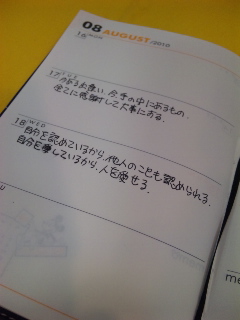 08 AUGUST/2010
16 MON
17 TUE
今ある出会い、今手の中にあるもの、
全てに感謝して大事にする。
18 WED
自分を認めているから、他人のことも認められる。
自分を愛しているから、人を愛せる。
me